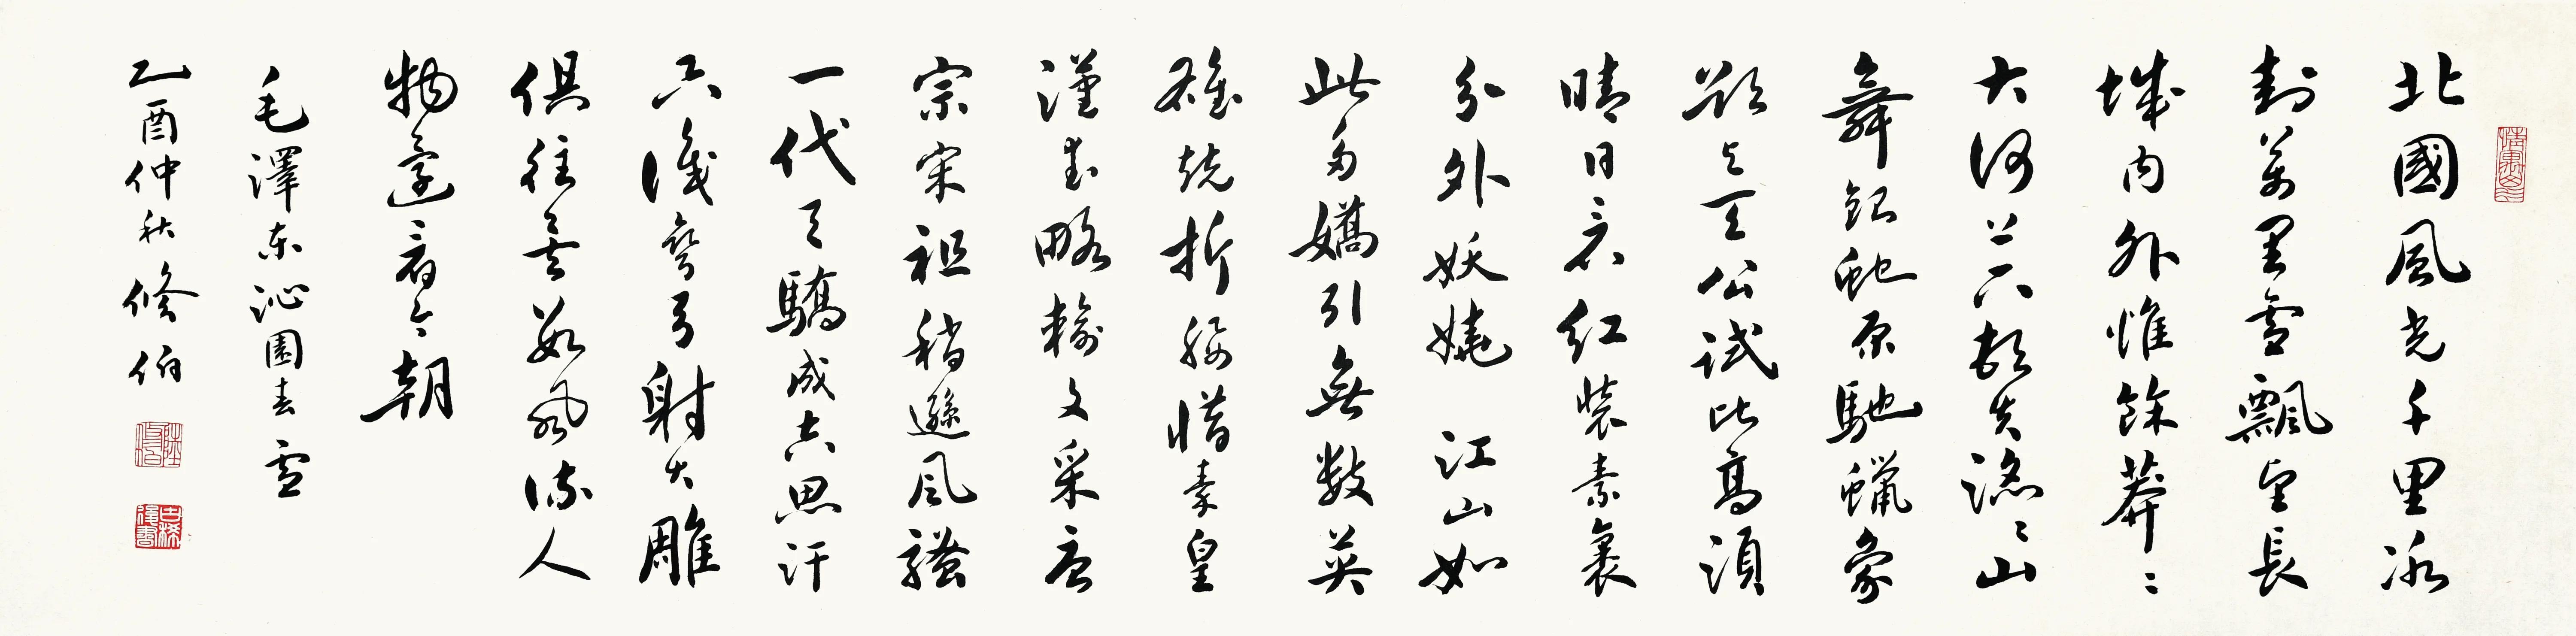 北國風光千里冰
封萬里雪飄望長
城内外惟餘莽々
大河上下頓失滔々山
舞銀蛇原馳蠟象
欲與天公試比高須
晴日看紅裝素裹
分外妖嬈江山如
此多嬌引無數英
雄競折腰惜秦皇
漢武略輸文采唐
宗宋祖稍遜風騷
一代天驕成吉思汗
只識彎弓射大雕
俱往矣數風流人
物還看今朝
毛澤東沁園春雪
乙酉仲秋修伯
陸修伯
古稀後書